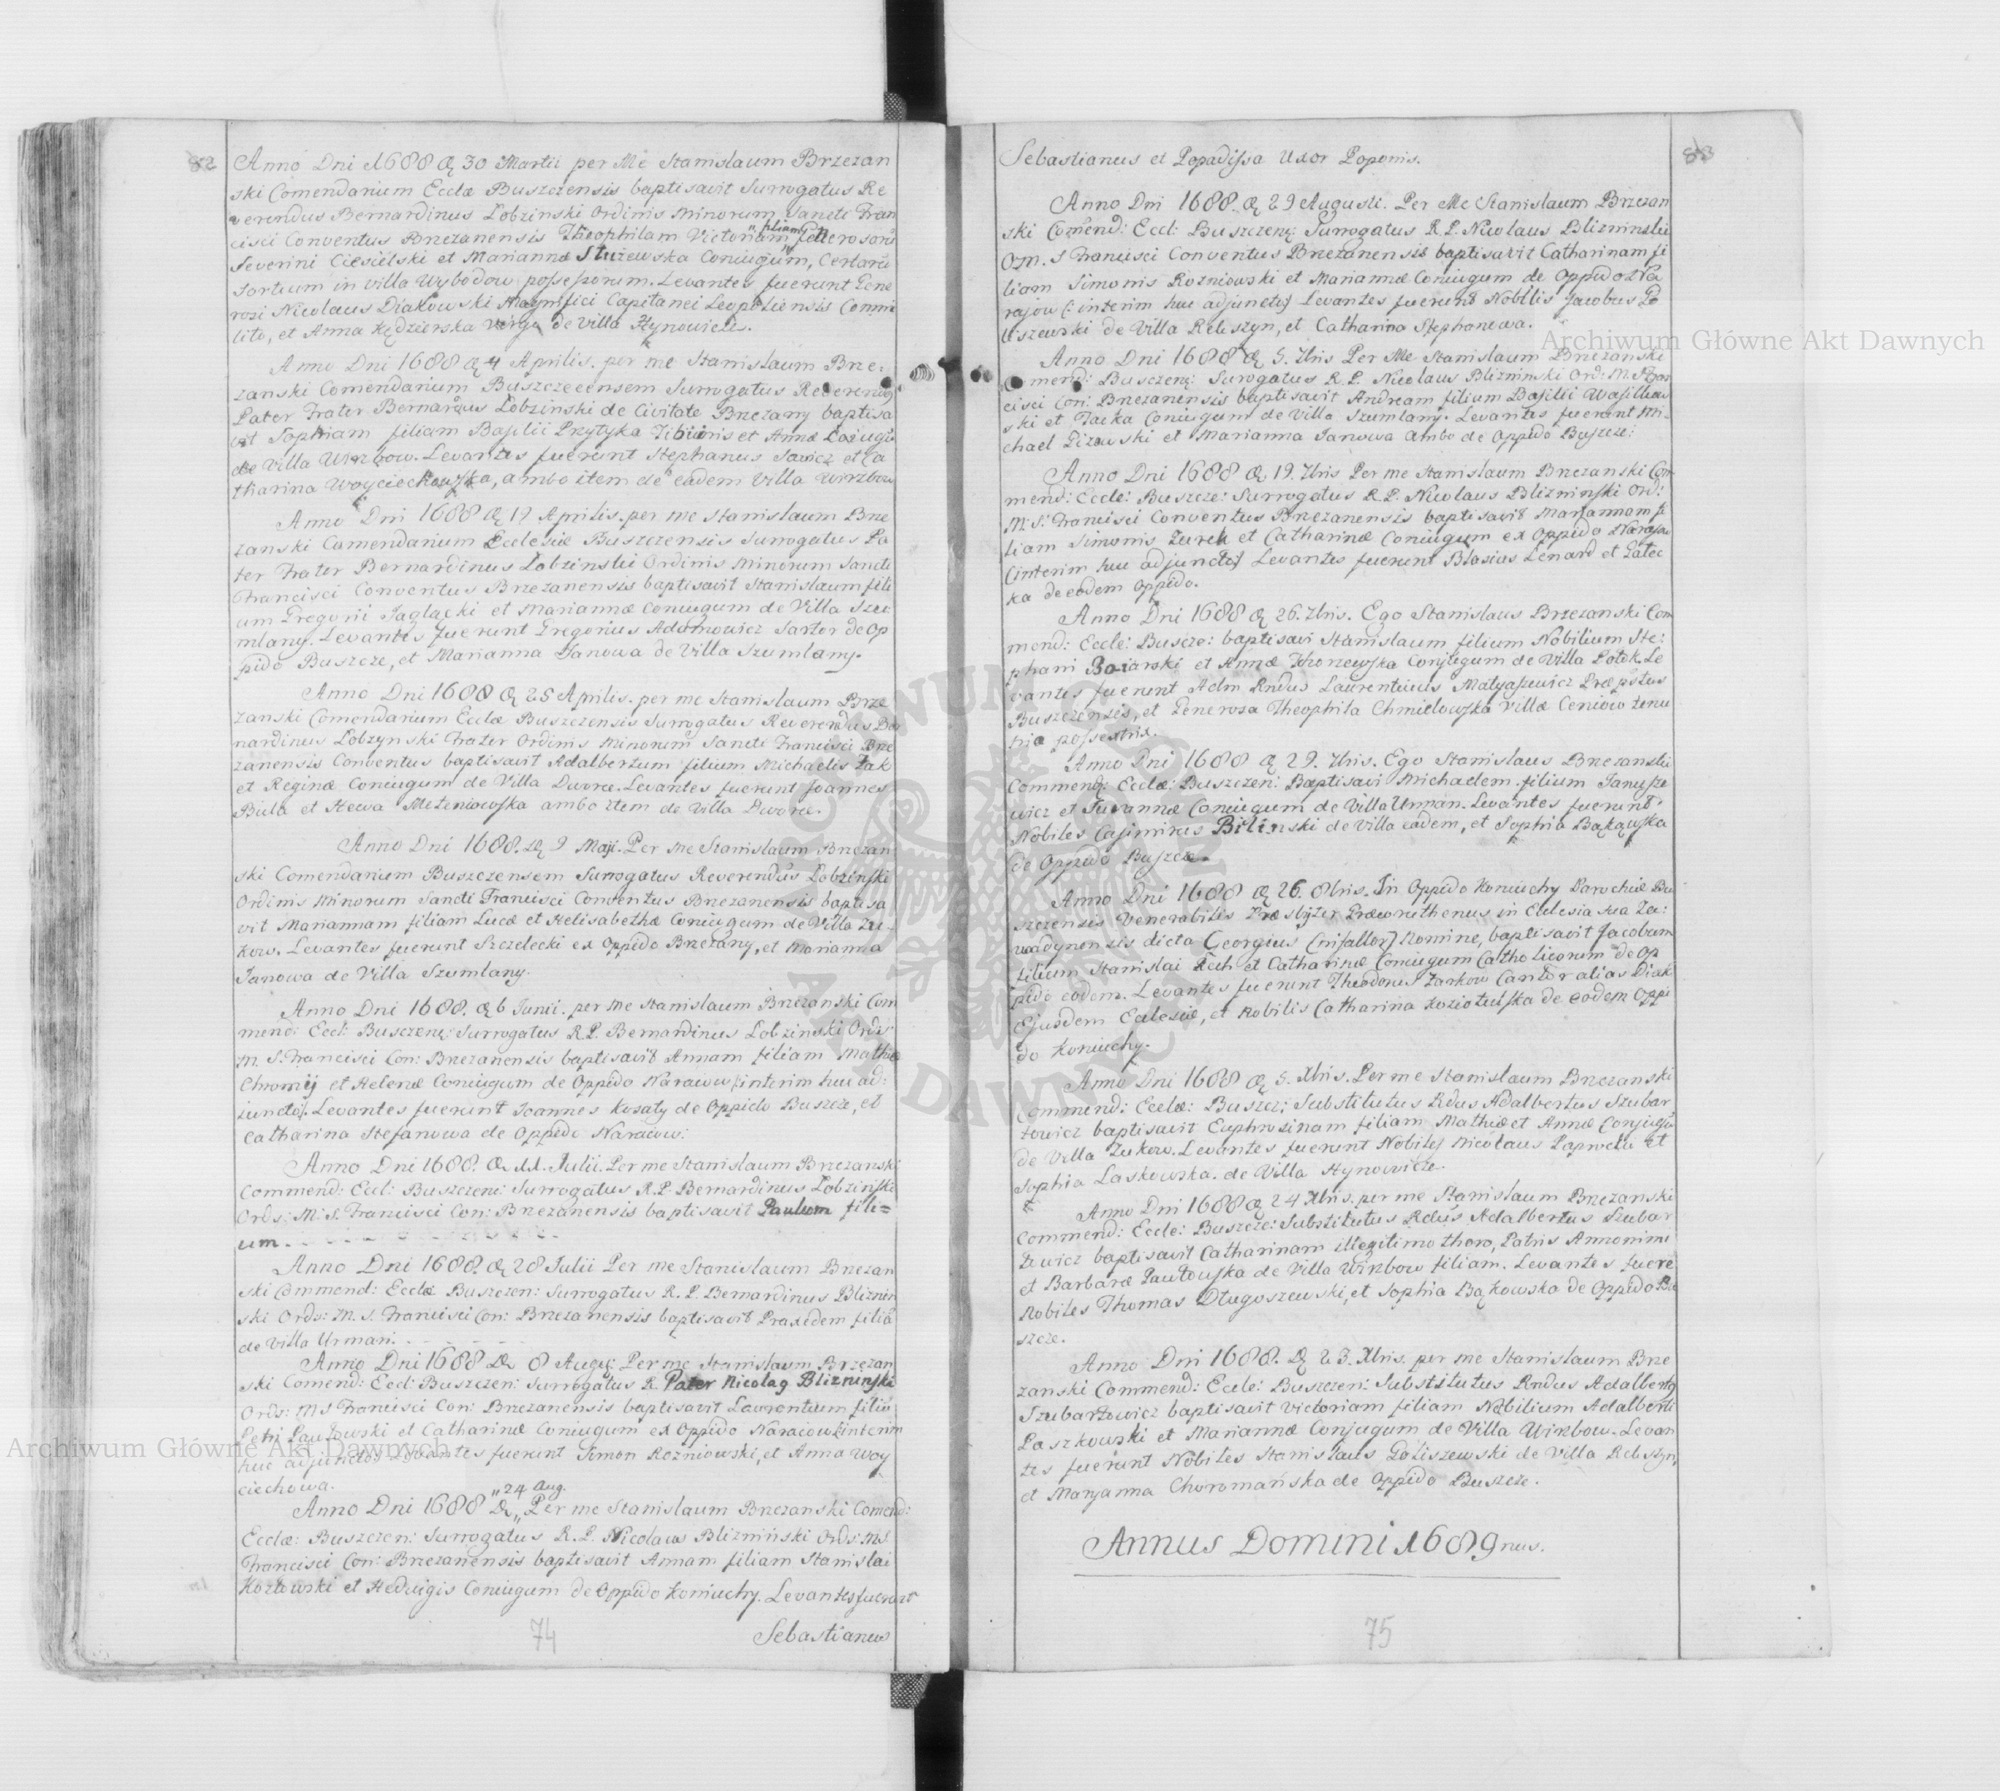 82
Anno Dni 1688 D 30 Martii per Me Stanislaum Brzezan
ski Comendarium Eccłæ Buszczensis baptisavit Surrogatus Re
verendus Bernardinus Łobzinski Ordinis Minorum Sancti Fran
cisci Conventus Brzezanensis Theophilam Victoriam filiam Generosorū
Severini Ciesielski et Mariannæ Stużewska Coniugum, Certarū
Sortium in Villa Wybodow possessorum. Levantes fuerunt Gene
rosi Nicolaus Diakowski Magnifici Capitanei Leopoliensis Commi
lito, et Anna Kędzierska Virgo de Villa Hynowicze.
Anno Dni 1688 D 4 Aprilis. per me Stanislaum Brze
zanski Comendarium Buszczecensem Surrogatus Reverendus
Pater Frater Bernardinus Łobzinski de Civitate Brzezany baptisa
vit Sophiam filiam Basilii Przytyka Tibicinis et Annæ Coniugū
de Villa Wirzbow. Levantes fuerunt Stephanus Sawicz et Ca
tharina Woyciechowska, ambo item de eadem Villa Wirzbow
Anno Dni 1688 D 17 Aprilis. per me Stanislaum Brze
zanski Comendarium Ecclesiæ Buszczensis Surrogatus Pa
ter Frater Bernardinus Łobzinski Ordinis Minorum Sancti
Francisci Conventus Brzezanensis baptisavit Stanislaum fili
um Gregorii Jaglącki et Mariannæ Coniugum de Villa Szu
mlany. Levantes fuerunt Gregorius Adamowicz Sartor de Op
pido Buszcze, et Marianna Janowa de Villa Szumlany.
Anno Dni 1688 D 25 Aprilis. per me Stanislaum Brze
zanski Comendarium Eccłæ Buszczensis Surrogatus Reverendus Ber
nardinus Łobzynski Frater Ordinis Minorum Sancti Francisci Brze
zanensis Conventus baptisavit Adalbertum filium Michaelis Żak
et Reginæ Coniugum de Villa Dworce. Levantes fuerunt Joannes
Biela et Hewa Meżeniowska ambo item de Villa Dworce.
Anno Dni 1688. D 9 Maji. Per me Stanislaum Brzezan
ski Comendarium Buszczensem Surrogatus Reverendus Łobzinski
Ordinis Minorum Sancti Francisci Conventus Brzezanensis baptisa
vit Mariannam filiam Lucæ et Helisabethæ Coniugum de Villa Żu
kow. Levantes fuerunt Szczelecki ex Oppido Brzezany, et Marianna
Janowa de Villa Szumlany.
Anno Dni 1688. D 6 Junii. per Me Stanislaum Brzezanski Com
mend: Eccl: Busczenę: Surrogatus R.P. Bernardinus Łobzinski Ords:
M. S. Francisci Con: Brzezanensis baptisavit Annam filiam Mathiæ
Chromij et Helenæ Coniugum de Oppido Naraiow (interim huc ad:
iuncto). Levantes fuerunt Joannes Kosaty de Oppido Buszcze, et
Catharina Stefanowa de Oppido Naraiow:
Anno Dni 1688. D 11. Julii. Per me Stanislaum Brzezanski
Commend: Eccl: Buszczen: Surrogatus R.P. Bernardinus Łobzinski
Ords: M: S. Francisci Con: Brzezanensis baptisavit Paulum fili=
um.
Anno Dni 1688. D 28 Julii Per me Stanislaum Brzezan
ski Commend: Eccłæ Buszczen: Surrogatus R.P. Bernardinus Bliznin
ski Ords: M. S. Francisci Con: Brzezanensis baptisavit Praxedem filiā
de Villa Urman.
Anno Dni 1688 D 8 Augu: Per me Stanislaum Brzezan
ski Comend: Eccl: Buszczen: Surrogatus R. Pater Nicolag Blizninski
Ords: M S Francisci Con: Brzezanensis baptisavit Laurentium filiū
Petri Pawłowski et Catharinæ Coniugum ex Oppido Naraiow (interim
huc adjuncto) Levantes fuerunt Simon Rozniowski, et Anna Woy
ciechowa.
Anno Dni 1688 D „24 Aug.„ Per me Stanislaum Brzezanski Comend:
Eccłæ: Buszczen: Surrogatus R.P. Nicolaus Blizniński Ords: MS.
Francisci Con: Brzezanensis baptisavit Annam filiam Stanislai
Kozłowski et Hedvigis Coniugum de Oppido Koniuchy. Levantes fuerunt
Sebastianus
74
83
Sebastianus et Popadissa Uxor Poponis.
Anno Dni 1688. D 29 Augusti. Per Me Stanislaum Brzezan
ski Comend: Eccl: Buszczenę: Surrogatus R.P. Nicolaus Blizninski
O.M. S Francisci Conventus Brzezanensis baptisavit Catharinam fi
liam Simonis Rozniowski et Mariannæ Coniugum de Oppido Na
rajow (: interim huc adjuncto) Levantes fuerunt Nobilis Jacobus Go
liszewski de Villa Reliszyn, et Catharina Stephanowa.
Anno Dni 1688 D 5. 7bris Per Me Stanislaum Brzezanski
Comend: Busczenę: Surogatus R.P. Nicolaus Blizninski Ord: M. S Fran
cisci Con: Brzezanensis baptisavit Andream filium Basilii Wasilkow
ski et Jacka Coniugum de Villa Szumlany. Levantes fuerunt Mi
chael Gizowski et Marianna Janowa ambo de Oppido Buszcze:
Anno Dni 1688 D 19. 7bris Per me Stanislaum Brzezanski Com
mend: Eccle: Buszcze: Surrogatus R.P. Nicolaus Blizninski Ord:
M: S: Francisci Conventus Brzezanensis baptisavit Mariannam fi
liam Simonis Żurek et Catharinæ Coniugum ex Oppido Narajow
(interim huc adjuncto) Levantes fuerunt Blasius Lenard et Gatec
ka de eodem Oppido.
Anno Dni 1688 D 26. 7bris. Ego Stanislaus Brzezanski Com
mend: Eccle: Buscze: baptisavi Stanislaum filium Nobilium Ste:
phani Boiarski et Annæ Thorzewska Conjugum de Villa Potok. Le
vantes fuerunt Adm Rndus Laurentius Matyaszewicz Præpstus
Buszczensis, et Generosa Theophila Chmielowska Villæ Ceniow tenu
tria possestrix.
Anno Dni 1688 D 29. 7bris. Ego Stanislaus Brzezanski
Commend: Eccłæ: Buszczen: Baptisavi Michaelem filium Janusze
wicz et Zuzannæ Coniugum de Villa Urman. Levantes fuerunt
Nobiles Casimirus Bilinski de Villa eadem, et Sophia Bąkowska
de Oppido Buszcze.
Anno Dni 1688 D 26. 8bris. In Oppido Koniuchy Parochiæ Bu
szczensis Venerabilis Præsbyter Præoruthenus in Ecclesia sua Za:
wadynensis dicta Georgius (ni fallor) Nomine, baptisavit Jacobum
filium Stanislai Rech et Catharinæ Coniugum Catholicorum de Op
pido eodem. Levantes fuerunt Theodorus Żarkow Cantor alias Diak
Ejusdem Ecclesiæ, et Nobilis Catharina Koziołulska de eodem Oppi
do Koniuchy.
Anno Dni 1688 D 5. Xbris. Per me Stanislaum Brzezanski
Commend: Eccłæ: Buszcz: Substitutus Rdus Adalbertus Szubar
towicz baptisavit Euphrosinam filiam Mathiæ et Annæ Conjugū
de Villa Żukow. Levantes fuerunt Nobiles Nicolaus Paprocki et
Sophia Laskowska. de Villa Hynowicze.
Anno Dni 1688 D 24 Xbris. per me Stanislaum Brzezanski
Commend: Eccle: Buszcze: Substitutus Rdus Adalbertus Szubar
towicz baptisavit Catharinam illegitimo thoro, Patris Annonimi
et Barbaræ Pawłowska de Villa Wirzbow filiam. Levantes fuere
Nobiles Thomas Długoszewski, et Sophia Bąkowska de Oppido Bu
szcze.
Anno Dni 1688. D 23. Xbris. per me Stanislaum Brze
zanski Commend: Eccle: Buszczen: Substitutus Rndus Adalbertg
Szubartowicz baptisavit Victoriam filiam Nobilium Adalberti
Paszkowski et Mariannæ Conjugum de Villa Wirzbow. Levan
tes fuerunt Nobiles Stanislaus Goliszewski de Villa Reliszyn,
et Maryanna Choromańska de Oppido Buszcze.
Annus Domini 1689nus.
75
Archiwum Główne Akt Dawnych
Archiwum Główne Akt Dawnych
ARCHIWUM GŁÓWNE AKT DAWNYCH